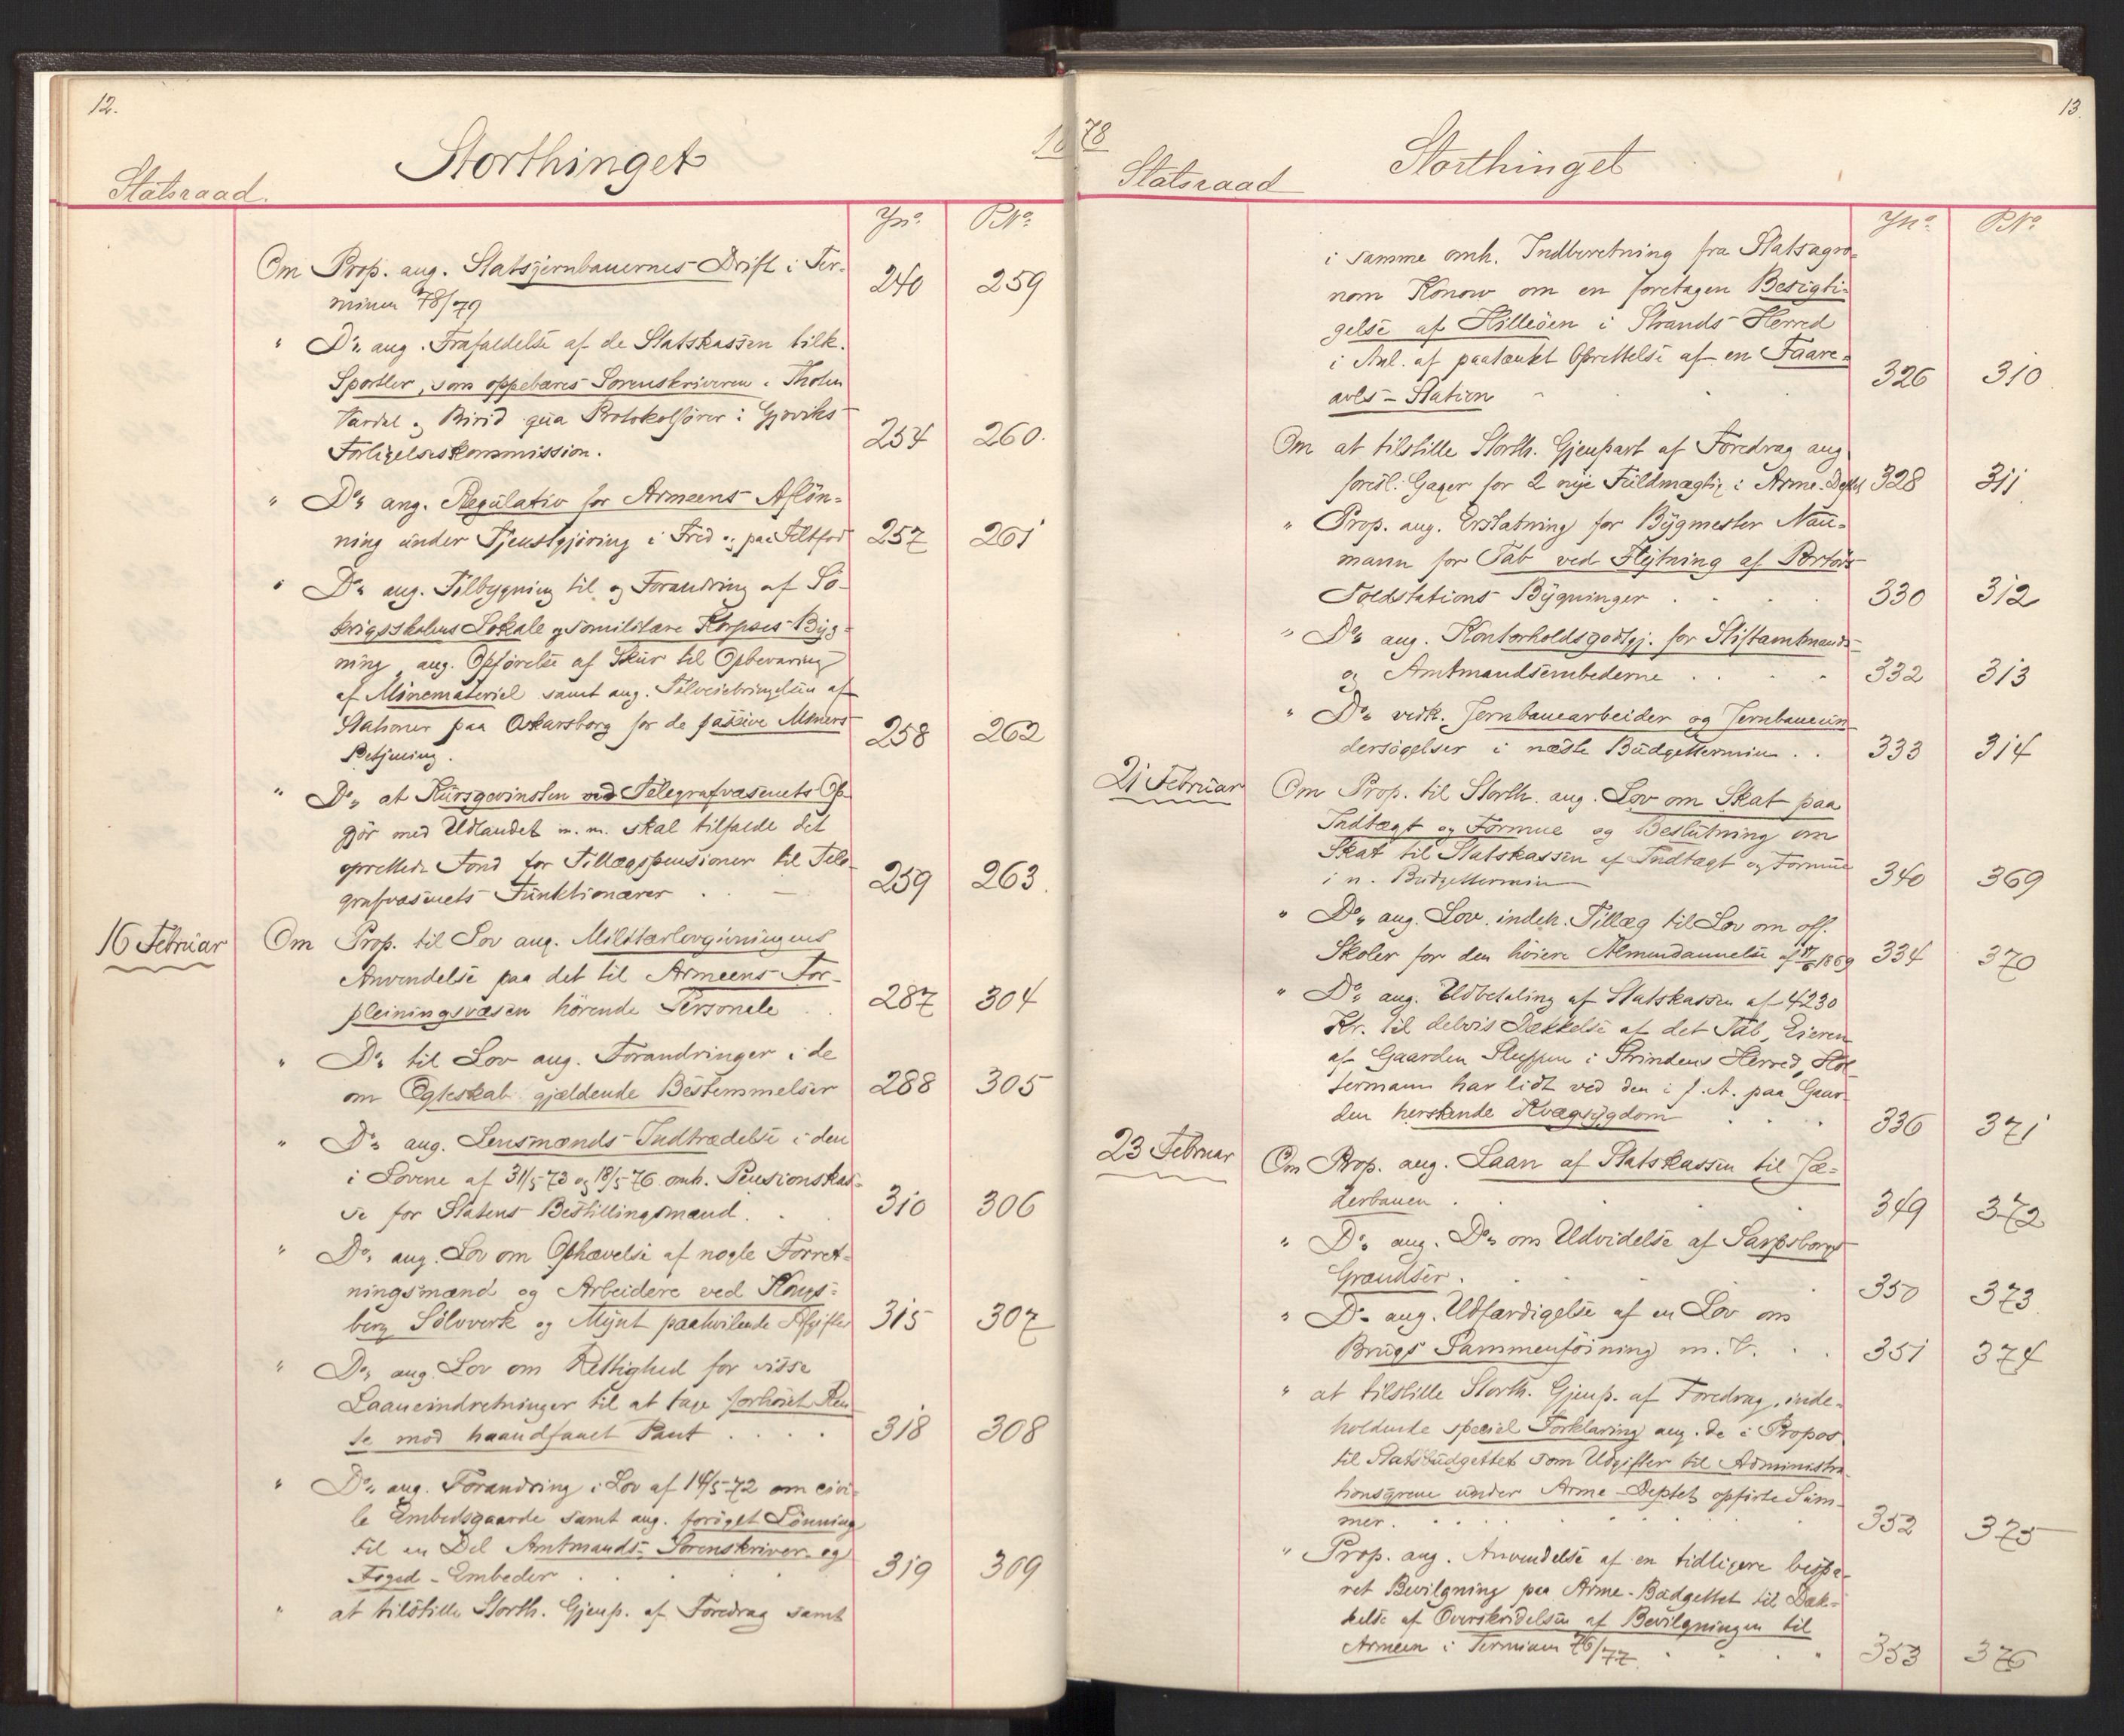 12.
Storthinget
1878
Statsraad.
Jn:o P.No.
Om Prop. ang. Statsjernbanernes Drift i Ter-
minen 78/79 240 259
" Do. ang. Frafaldelse af de Statskassen tilk.
Sportler, som oppebæres Sorenskriveren i Thoten
Vardal og Birid qua Protokolfører i Gjøviks
Forligelseskommission. 254 260.
" Do. ang. Regulativ for Armeens Afløn-
ning under Tjenstgjøring i Fred og paa Feltfod 257 261
" Do. ang. Tilbygning til og Forandring af Sø-
krigsskolens Lokale og Sømilitære Korpses Byg-
ning, ang. Opførelse af Skur til Opbevaring
af Minemateriel samt ang. Tilveiebringelsen af
Stationer paa Oskarsborg for de passive Miners
Betjening. 258 262
" Do. at Kursgevinsten ved Telegrafvæsenets Op-
gjør med Udlandet m. m. skal tilfalde det
oprettede Fond for Tillægspensioner til Tele-
grafvæsenets Funktionærer . 259 263.
16 Februar Om Prop. til Lov ang. Militærlovgivningens
Anvendelse paa det til Armeens For-
pleiningsvæsen hørende Personale . . 287 304
" Do. til Lov ang. Forandringer i de
om Egteskab gjældende Bestemmelser 288 305
" Do. ang. Lensmænds Indtrædelse i den
i Lovene af 31/5 73 og 18/5 76 omh. Pensionskas-
se for Statens Bestillingsmænd . . 310 306
" Do. ang. Lov om Ophævelse af nogle Forret-
ningsmænd og Arbeidere ved Kongs-
berg Sølvverk og Mynt paahvilende Afgifter 315 307
" Do. ang. Lov om Rettighed for visse
Laaneindretninger til at tage forhøiet Ren-
te mod haandfaaet Pant . . . . 318 308
" Do. ang. Forandring i Lov af 14/5 72 om civi-
le Embedsgaarde samt ang. forøget Lønning
til en Del Amtmands- Sorenskriver- og
Foged-Embeder . . . . 319 309
" at tilstille Storth. Gjenp. af Foredrag samt
13.
Storthinget
Statsraad
Jn:o P.No.
i samme omh. Indberetning fra Statsagro-
nom Konow om en foretagen Besigti-
gelse af Hilleöen i Strands Herred
i Anl. af paatænkt Oprettelse af en Faare-
avls-Station 326 310.
Om at tilstille Storth. Gjenpart af Foredrag ang.
foresl. Gager for 2 nye Fuldmægtig i Arme-Deptet 328 311
" Prop. ang. Erstatning for Bygmester Nau-
mann for Tab ved Flytning af Portørs
Toldstations Bygninger . . . . 330 312
" Do. ang. Kontorholdsgodtgj. for Stiftamtmands-
og Amtmandsembederne . . . . 332 313
" Do. vedk. Jernbanearbeider og Jernbaneun-
dersøgelser i næste Budgettermin . . 333 314
21 Februar Om Prop. til Storth. ang. Lov om Skat paa
Indtægt og Formue og Beslutning om
Skat til Statskassen af Indtægt og Formue
i n. Budgettermin 340 369
" Do. ang. Lov. indeh. Tillæg til Lov om off.
Skoler for den høiere Almendannelse af 17/6 1869 334 370
" Do. ang. Udbetaling af Statskassen af 4230
Kr. til delvis Dækkelse af det Tab, Eieren
af Gaarden Sluppen i Strindens Herred, Hol-
termann har lidt ved den i f. A. paa Gaar-
den herskende Kvægsygdom . . . 336 371
23 Februar Om Prop. ang. Laan af Statskassen til Jæ-
derbanen . . . 349 372
" Do. ang. Do. om Udvidelse af Sarpsborgs
Grændser . . . . 350 373
" Do. ang. Udfærdigelse af en Lov om
Brugs Sammenføining m. V. . . 351 374
" at tilstille Storth. Gjenp. af Foredrag, inde-
holdende speciel Forklaring ang. de i Propos.
til Statsbudgettet som Udgifter til Administra-
tionsgrene under Arme-Deptet opførte Sum-
mer . . . . . . . 352 375
" Prop. ang. Anvendelse af en tidligere bespa-
ret Bevilgning paa Arme-Budgettet til Dæk-
kelse af Overskridelsen af Bevilgningen til
Armeen i Terminen 76/77 . . . . 353 376